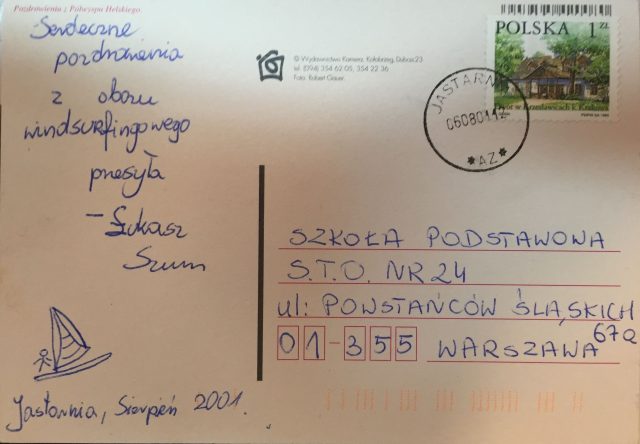 Pozdrowienia z Półwyspu Helskiego
Serdeczne
pozdrowienia
z obozu
windsurfingowego
przesyła
- Łukasz
Szum
Jastarnia, Sierpień 2001.
© Wydawnictwo Kamera, Kołobrzeg, Dubois 23
tel. (094) 354 62 05, 354 22 36
Foto: Robert Gauer.
POLSKA 1 ZŁ
JASTARNIA
06080112
*AZ*
SZKOŁA PODSTAWOWA
S.T.O. NR 24
ul: POWSTAŃCÓW ŚLĄSKICH
67a
01-355 WARSZAWA